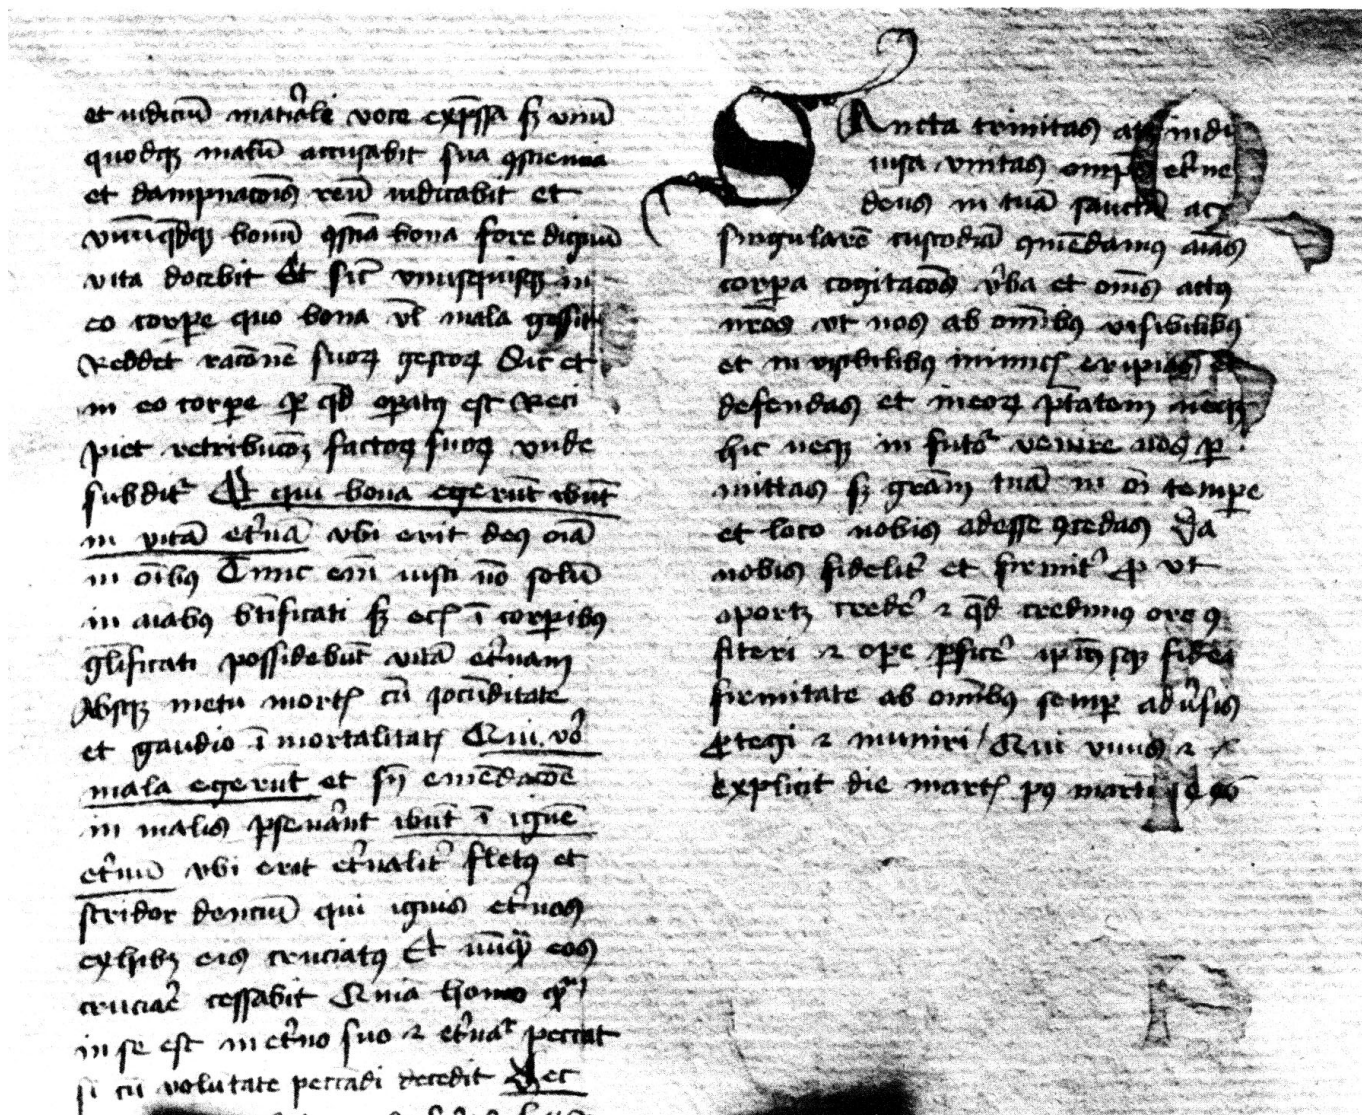 et iudiciū mat̄iale voce exp̄ssa sꝫ vnū
quodqꝫ malū accusabit sua ꝯsciencia
et dampnacōis reū iudicabit et
vnūqdqꝫ bonū ꝯscīa bona fore dignū
vita docebit Et sic vnusquisqꝫ in
eo corpe quo bona vl mala gessit
Reddet racōnē suoꝝ gestoꝝ Sic et
in eo corpe ꝑ qd opatꝰ est Reci
piet retribucōꝫ factoꝝ suoꝝ vnde
subditr Et qui bona egerūt ibūt
in vitā et̄nā vbi erit deꝰ oīa
in oībꝰ Tunc em̄ iusti nō solū
in aīabꝰ btīficati sꝫ ī corꝑibꝰ
glīficati possidebūt vitā et̄nam
Absqꝫ metu mortꝭ cū iocūditate
et gaudio īmortalitatꝭ Qui vo
mala egerūt et sn̄ emēdacōe
in malis ꝑseuānt ibūt ī ignē
et̄nū vbi erit et̄nalit̄ fletꝰ et
stridor denciū qui ignis et̄nos
exhibꝫ eis cruciatꝰ Et nūqꝫ eos
cruciare cessabit Quia homo
in se est in et̄no suo ⁊ et̄nal peccat
si cū volūtate peccādi decedit Hec
SAncta trinitas atqꝫ indi
uisa vnitas omp̄s et̄ne
deus in tuā sanctā ac
singularē custodiā ꝯmēdamꝰ aīas
corpa cogitacōes v̄ba et om̄s actꝰ
nrōs vt nos ab om̄ibꝰ visibilibꝰ
et inuisibilibꝰ inimicꝭ eripias et
defendas et in eoꝝ ptātem neqꝫ
hic neqꝫ in futo venire nos ꝑ
mittas sꝫ grām tuā in oī tempe
et loco nobis adesse ꝯcedas Da
nobis fidelit̄ et firmit̄ ꝓ vt
oportꝫ crede ⁊ qd credimꝰ ore ꝯ
fiteri ⁊ ope ꝑfice fidei
firmitate ab om̄ibꝰ semꝑ adūsis
ꝓtegi ⁊ muniri / Qui viuis ⁊
explicit die martꝭ pꝰ